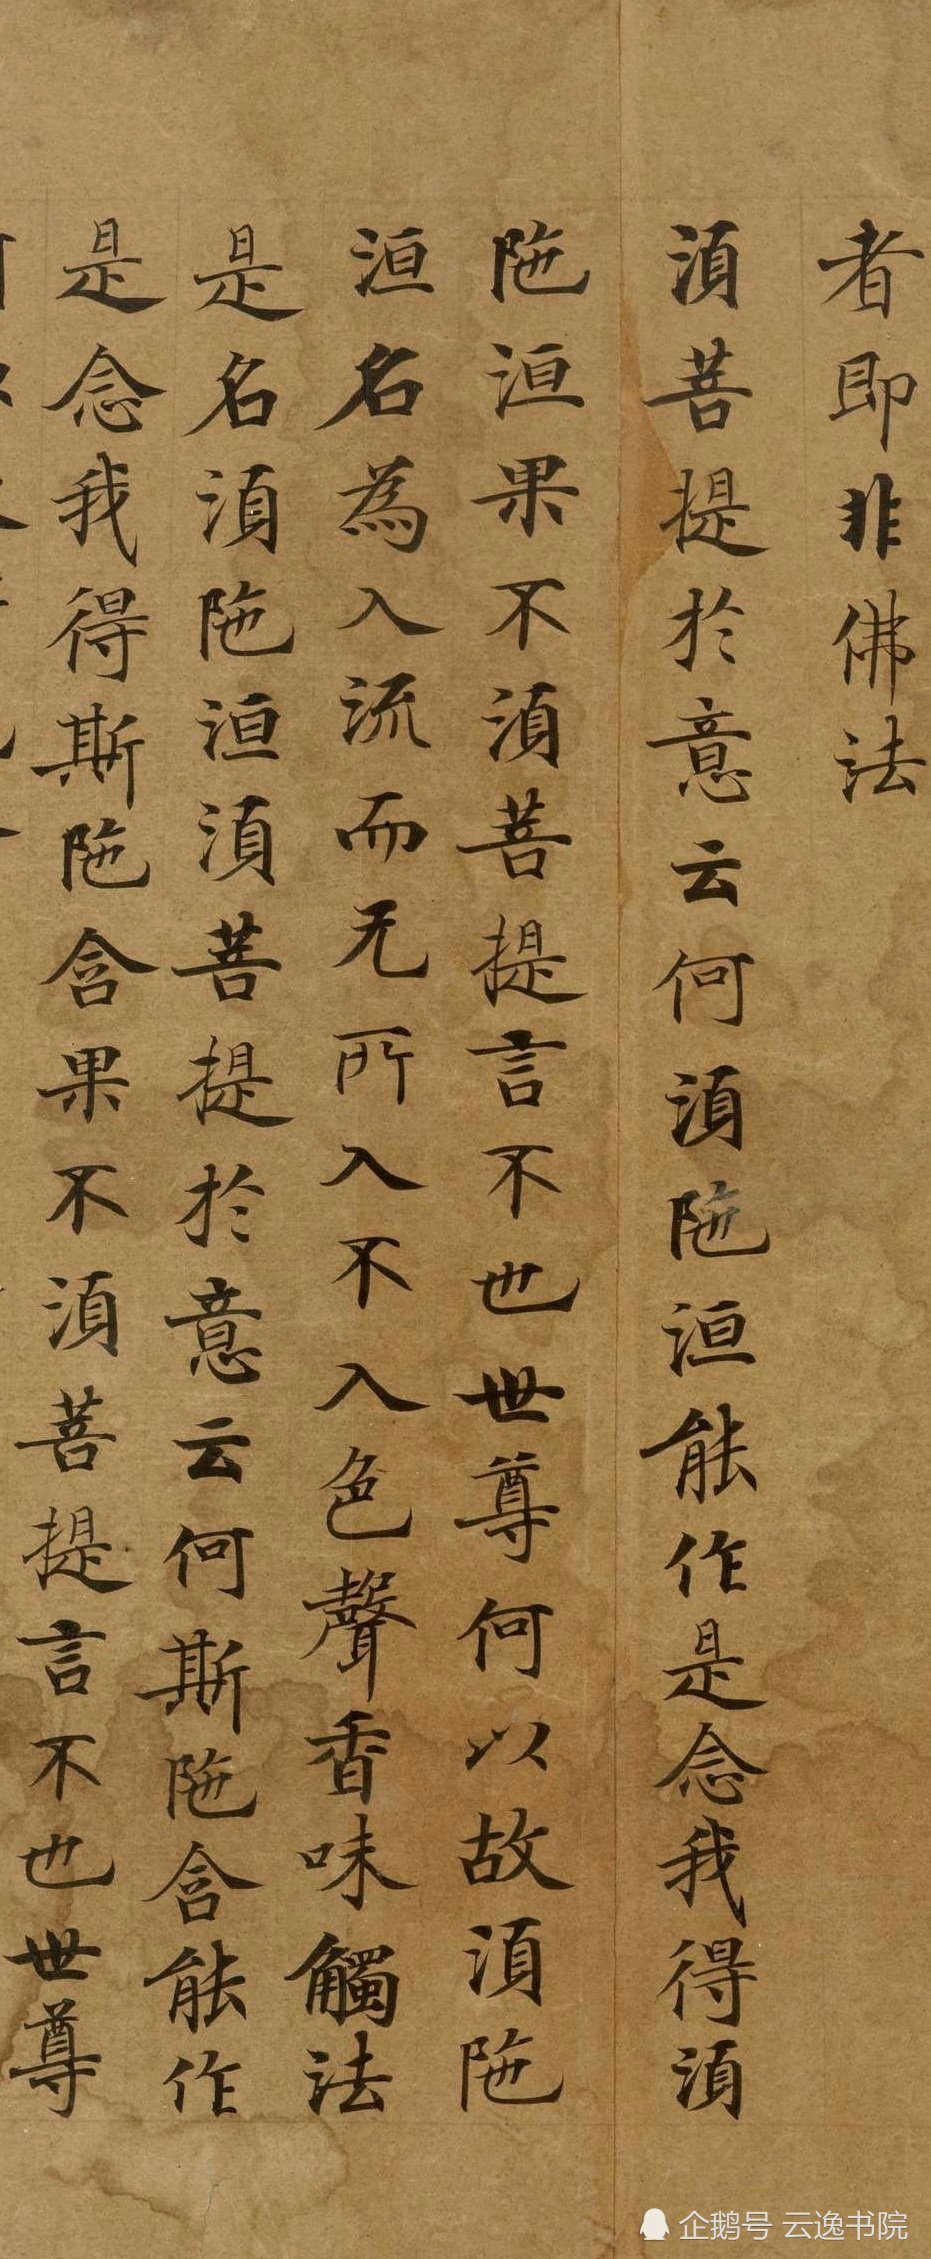 者即非佛法
湏菩提於意云何湏陁洹能作是念我得湏
陁洹果不湏菩提言不也世尊何以故湏陁
洹名為入流而无所入不入色聲香味觸法
是名湏陁洹湏菩提於意云何斯陁含能作
是念我得斯陁含果不湏菩提言不也世尊
企鹅号 云逸书院